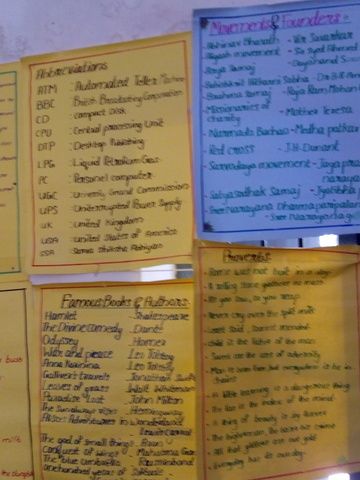 Abbreviations
ATM : Automated Teller Machine
BBC : British Broadcasting Corporation
CD : compact Disk
CPU : Central processing Unit
DTP : Desktop Publishing
LPG : Liquid Petroleum Gas
PC : Personel computer
UGC : University Grand Commission
UPS : Uninterrupted Power Supply
UK : United Kingdom
USA : United States of America
SSA : Sarva Shiksha Abhiyan
Movements & Founders :-
Abhinav Bharath - Vir Savarkar
Aligarh movement - Sir Syed Ahmed
Arya Samaj - Dayanand
Brahmo Samaj - Raja Ram Mohan
Missionaries of
charity - Mother Teresa
Narmada Bachao - Medha patkar
Red cross - J.H. Dunant
Sarvodaya movement - Jayapra
naraya
Satyasodhak Samaj - Jyotibha
Sree Narayana Dharma paripalan
- Sree Narayana
Famous Books & Authors:-
Hamlet - Shakespeare
The Divine comedy - Dante
Odyssey - Homer
War and peace - Leo Tolstoy
Anna Karenina - Leo Tolstoy
Gulliver's travels - Jonathan Swift
Leaves of grass - Walt Whitman
Paradise Lost - John Milton
The Sun always rises - Hemingway
Alice's Adventures in wonderland
- Lewis Carroll
The god of small things
The blue umbrella - Ruskin bond
one hundred years of Solitude
Proverbs
- Rome was not built in a day
- A rolling stone gathers no moss
- As you sow, so you reap
- Never cry over the spilt milk
- Least said, soonest mended
- Child is the father of the man
- Sweet are the uses of adversity
- Man is born free but everywhere is in
chains
- A little learning is a dangerous thing
- The face is the index of the mind
- A thing of beauty is a joy forever
- All that glitters are not gold
- Everydog has its own day
milk